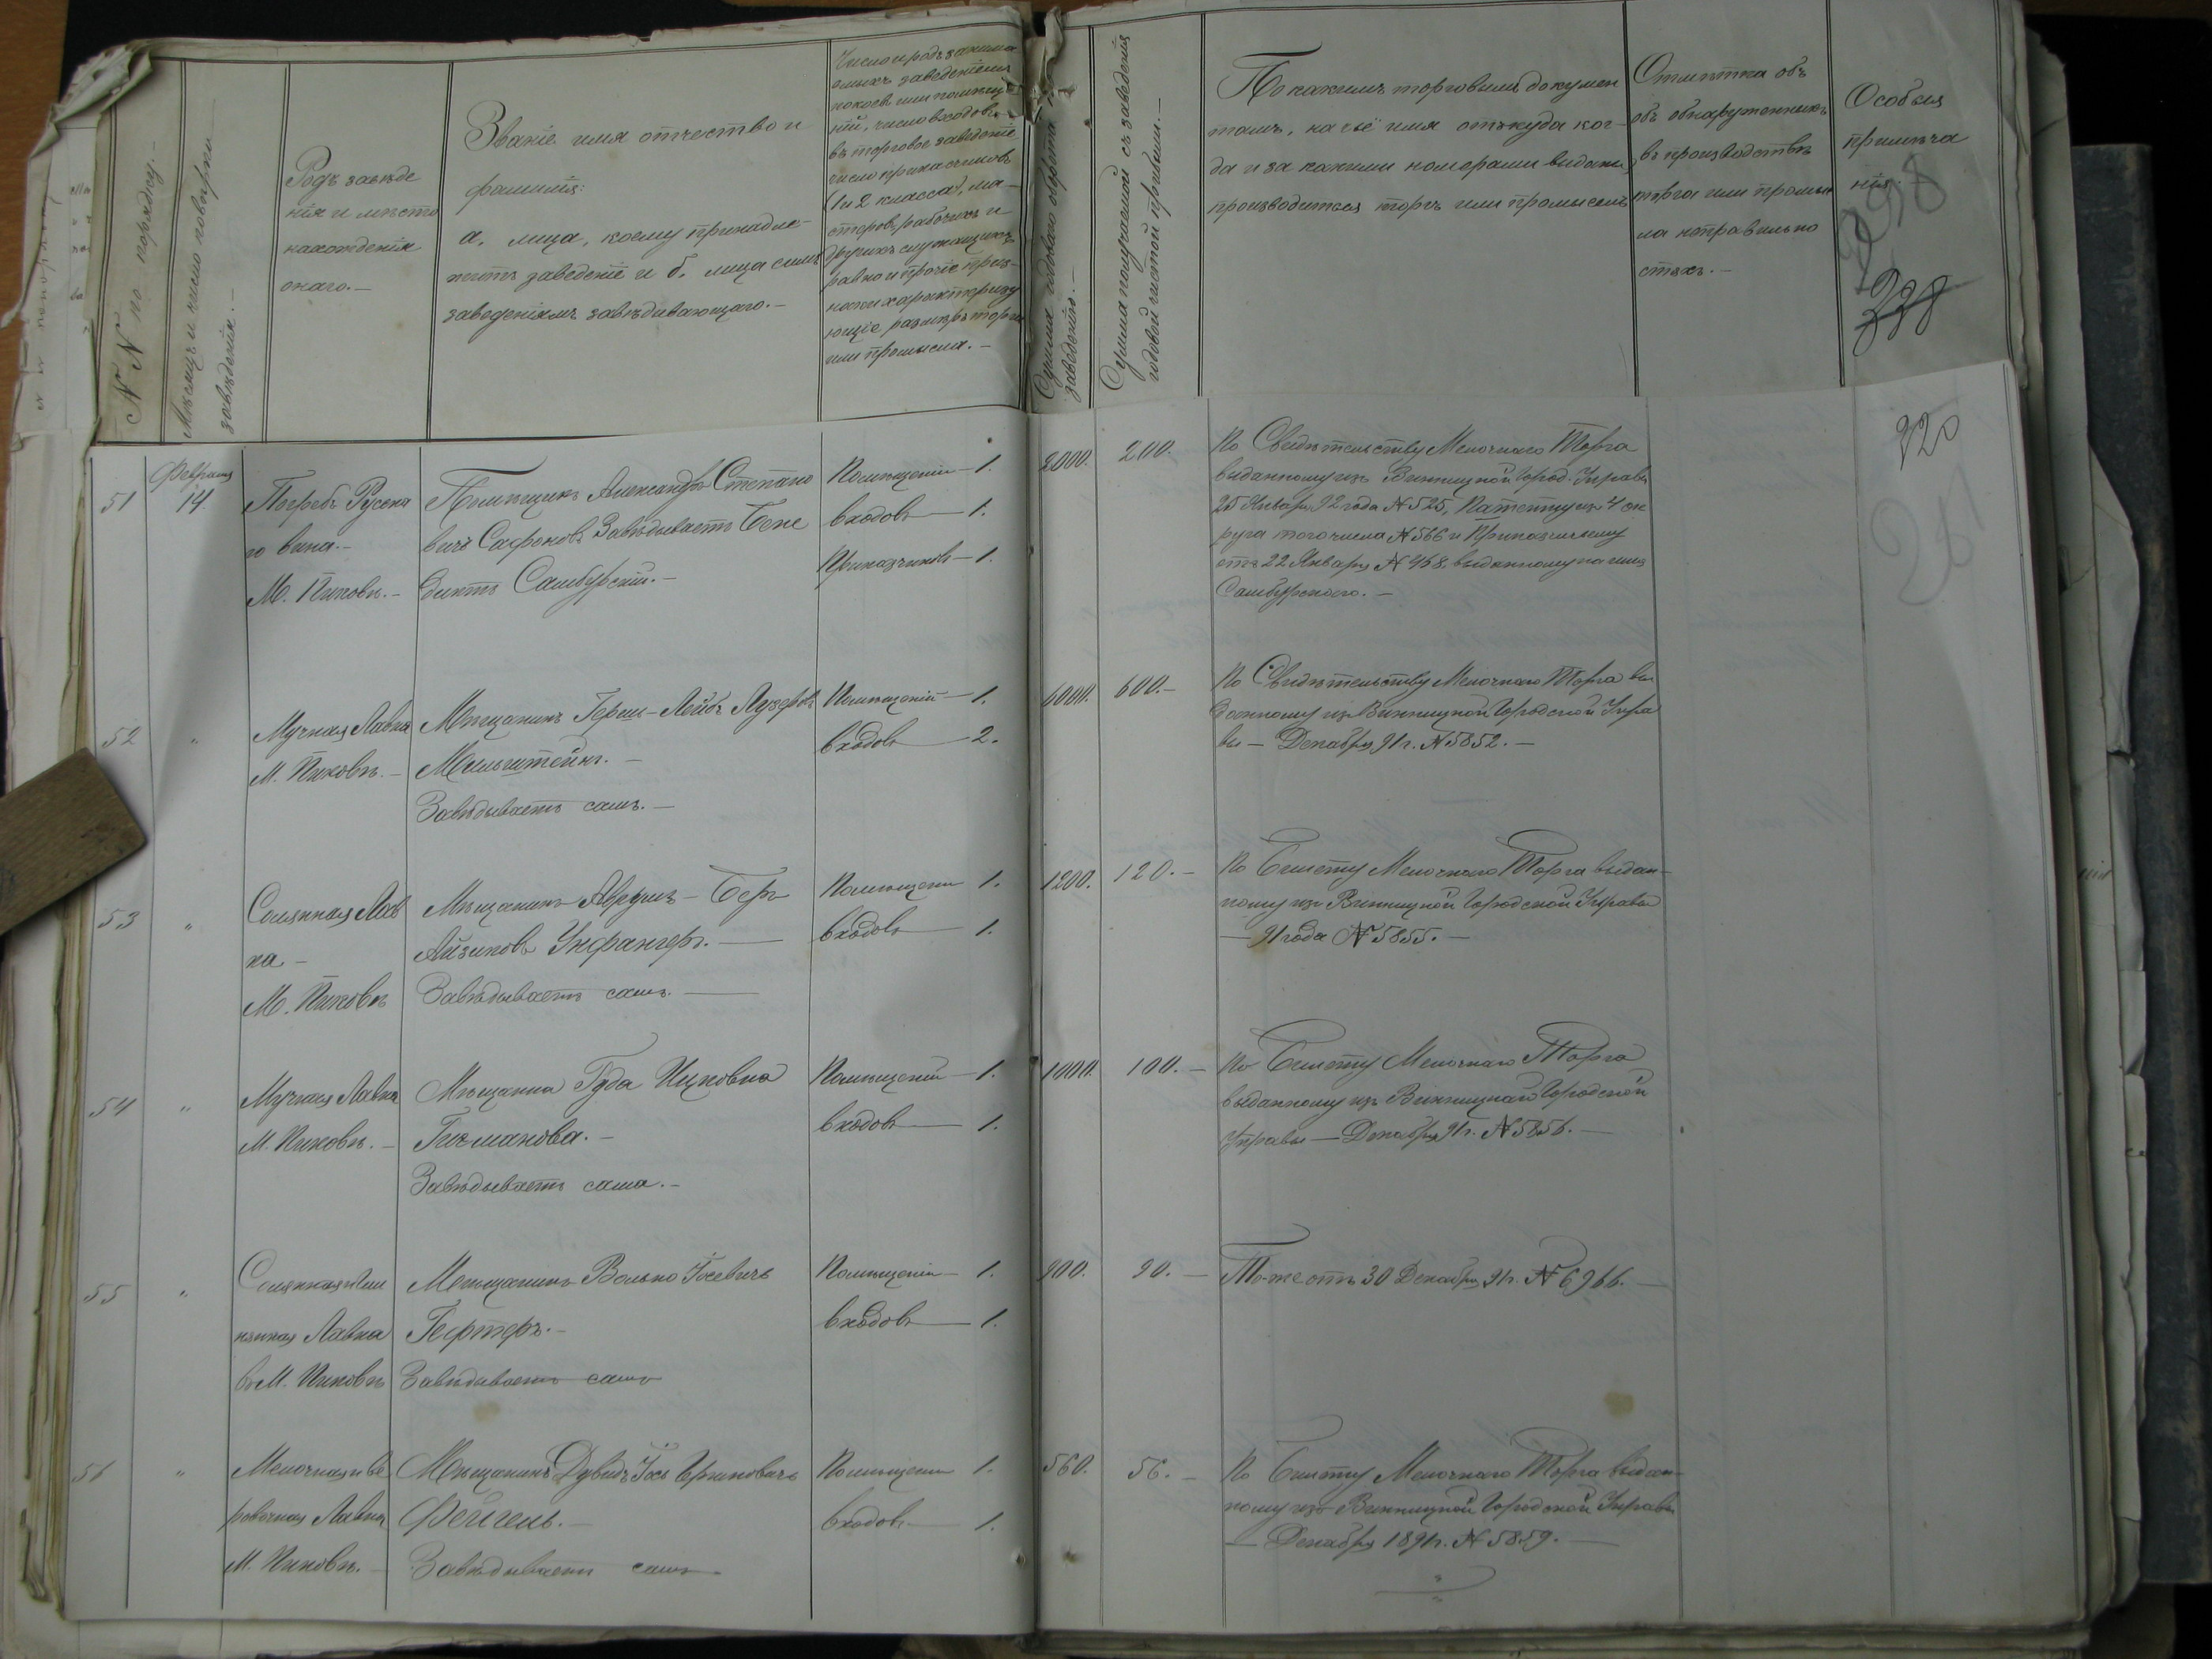 N N по порядку.—
Мѣсяцъ и число повѣрки
заведенія.—
Родъ заведе
нія и мѣсто
нахожденія
онаго.—
Званіе имя отчество и
фамилія:
а, лица, коему принадле-
житъ заведеніе и б, лица симъ
заведеніемъ завѣдывающаго.—
Число и родъ занима
емыхъ заведеніемъ
покоевъ или помѣще
ній, число входовъ
въ торговое заведеніе
число прикасчиковъ
(1 и 2 класса), ма-
стеровъ, рабочихъ и
другихъ служащихъ,
равно и прочіе приз-
наки характеризу
ющіе размѣръ торга
или промысла.—
Сумма годоваго оборота по
заведенію.—
Сумма получаемой съ заведенія
годовой чистой прибыли.—
По какимъ торговымъ докумен
тамъ, на чьё имя откуда ког-
да и за какими номерами выданы,
производится торгъ или промыселъ
Отмѣтка объ
объ обнаруженныхъ
въ производствѣ
торга или промыс
ла неправильно
стяхъ.—
Особыя
примѣча
нія.
338
320
51
Февраля
14.
Погребъ Руска
го вина.—
М. Пиковъ.—
Помѣщикъ Александръ Степано
вичъ Сафоновъ Завѣдываетъ Бене
диктъ Самбурскій.—
Помѣщеній—1.
входовъ—1.
Приказчиковъ—1.
2000.
200.
По Свидѣтельству Мелочнаго Торга
выданному изъ Винницкой Город. Управы
25 Января 92 года N 525, Патенту изъ 4 ок
руга того числа N 566 и Приказчичьему
отъ 22 Января N 468, выданному на имя
Самбурскаго.—
52
"
Мучная Лавка
М. Пиковъ.—
Мѣщанинъ Герш-Лейбъ Лузеровъ
Мильштейнъ.—
Завѣдываетъ самъ.—
Помѣщеній—1.
входовъ—2.
6000.
600.—
По Свидѣтельству Мелочнаго Торга вы
данному изъ Винницкой Городской Упра
вы — Декабря 91 г. N 5852.—
53
"
Соляная Лав
ка—
М. Пиковъ
Мѣщанинъ Аврумъ-Беръ
Айзиковъ Унфангеръ.—
Завѣдываетъ самъ.—
Помѣщеній 1.
входовъ—1.
1200.
120.—
По Билету Мелочнаго Торга выдан-
ному изъ Винницкой Городской Управы
— 91 года N 5855.—
54
"
Мучная Лавка
М. Пиковъ.—
Мѣщанка Гуда Ицковна
Гихманова.—
Завѣдываетъ сама.—
Помѣщеній—1.
входовъ—1.
1000.
100.—
По Билету Мелочнаго Торга
выданному изъ Винницкой Городской
Управы — Декабря 91 г. N 5856.—
55
"
нъикая Лавка
въ М. Пиковъ
Мѣщанинъ Волько Іосевичъ
Гефтеръ.—
Завѣдываетъ самъ
Помѣщеній—1.
входовъ—1.
900.
90.—
То-же отъ 30 Декабря 91 г. N 6966.—
56
"
Мелочная и Ве
ровочная Лавка
М. Пиковъ.—
Мѣщанинъ Дувидъ Іось Ариновичъ
Фейгель.—
Завѣдываетъ самъ
Помѣщеній 1.
входовъ—1.
560.
56.—
По Билету Мелочнаго Торга выдан-
ному изъ Винницкой Городской Управы
— Декабря 1891 г. N 5859.—